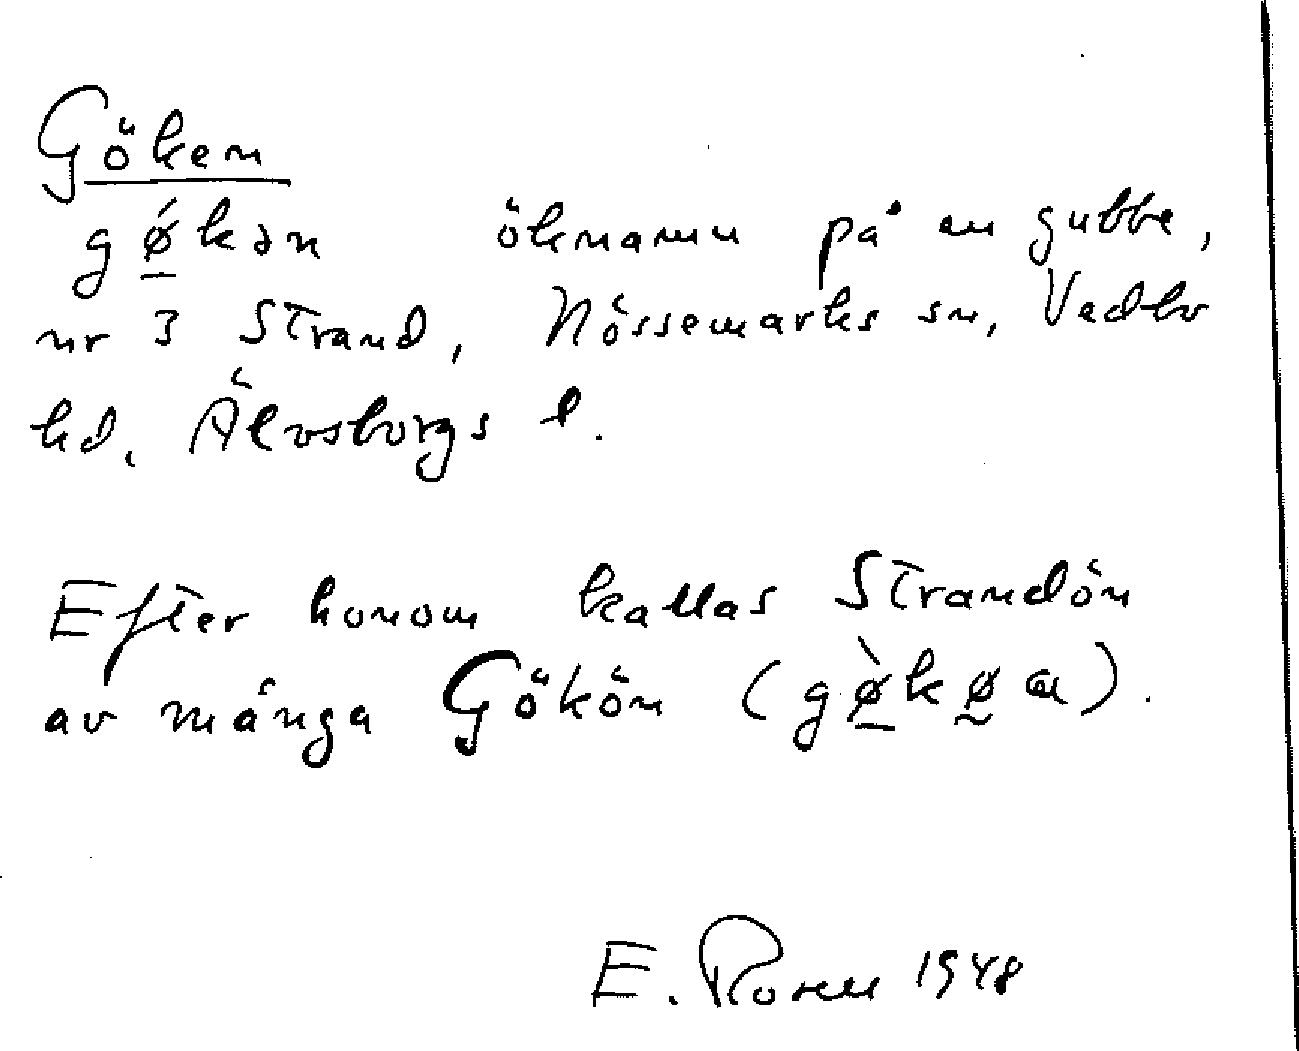 Göken
gǿkən öknamn på en gubbe,
nr 3 Strand, Nössemarks sn, Vedbo
hd, Älvsborgs l.
Efter honom kallas Strandön
av många Gökön (gø̀kø a).
E. Rosell 1948